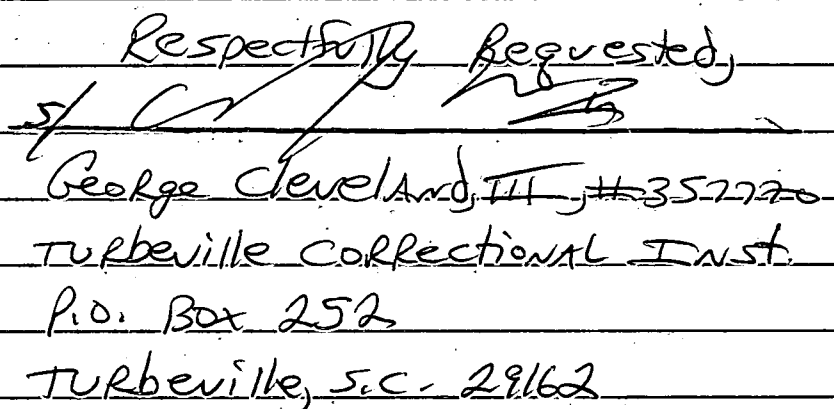 Respectfully Requested,
s/
George Cleveland, III, #357770
Turbeville Correctional Inst.
P.O. Box 252
Turbeville, S.C. 29162